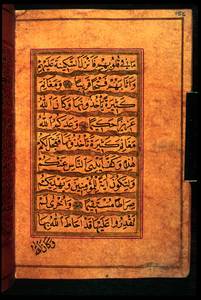 ما في قلوبهم فأنزل السكينة عليهم
وأثابهم فتحا قريبا ومغانم
كثيرة يأخذونها وكان الله
عزيزا حكيما وعدكم الله
مغانم كثيرة تأخذونها فعجل لكم
هذه وكف أيدي الناس عنكم
ولتكون آية للمؤمنين ويهديكم
صراطا مستقيما وأخرى لم
تقدروا عليها قد أحاط الله بها
وكان الله